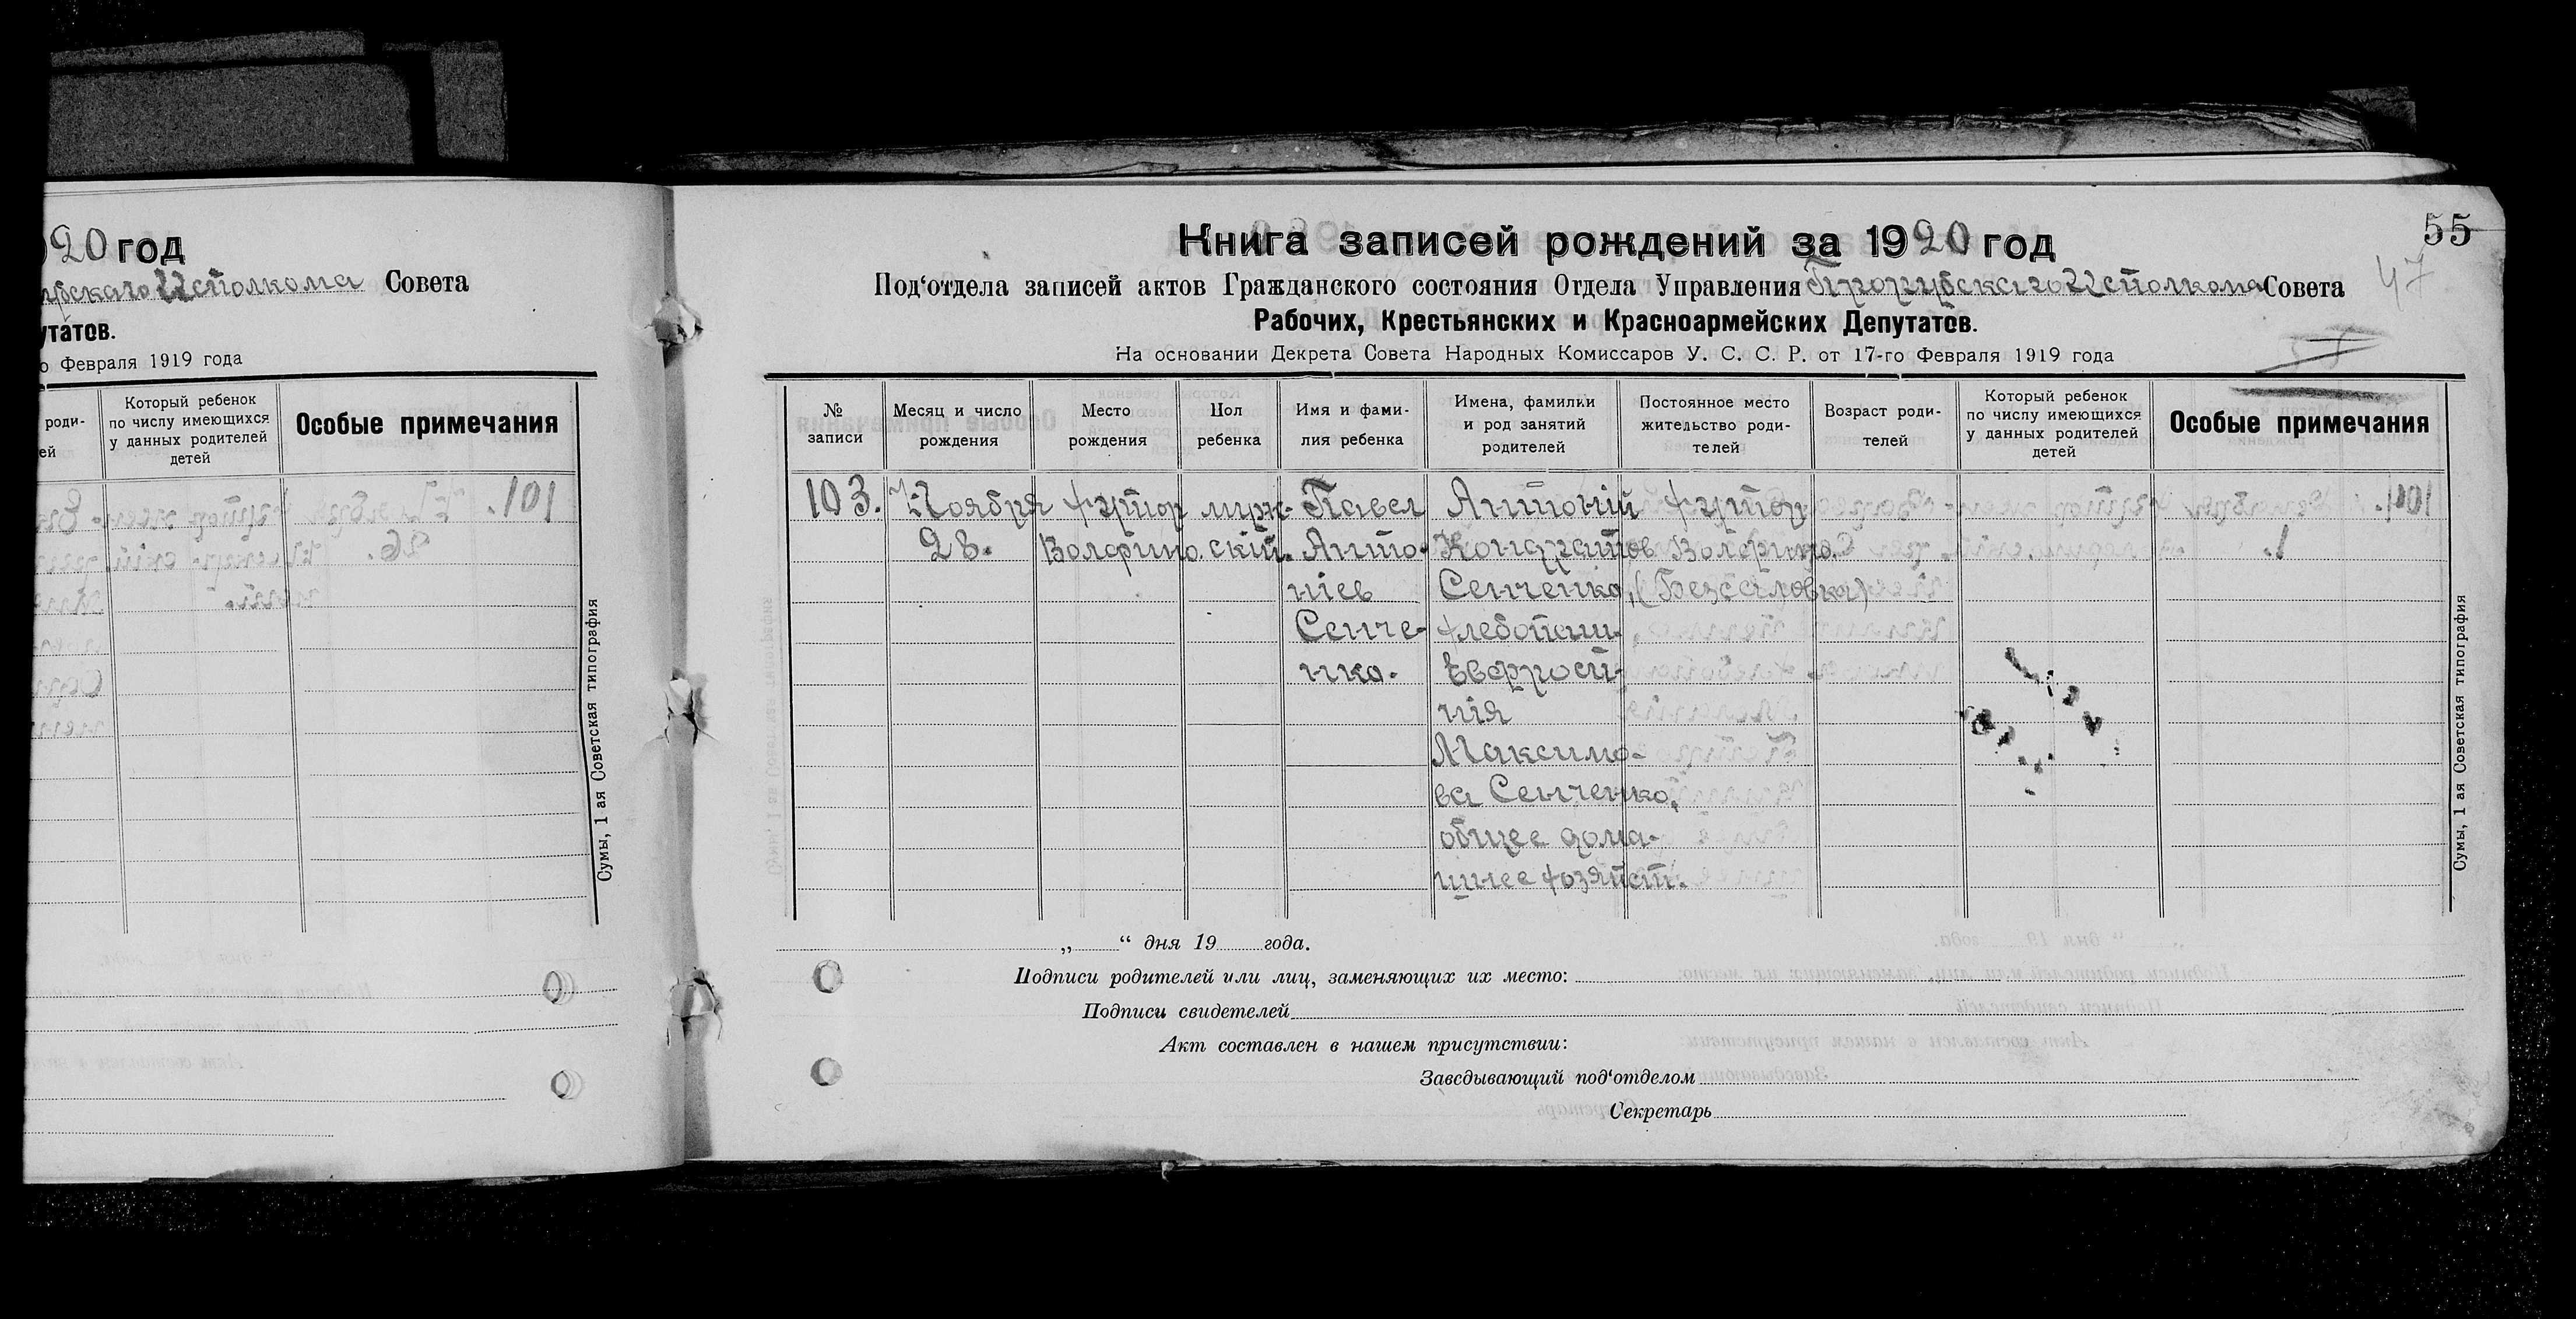 20 год
Исполкома Совета
утатов.
о Февраля 1919 года
роди-
ей
Который ребенок
по числу имеющихся
у данных родителей
детей
Особые примечания
Сумы, 1 ая Советская типография
55
47
Книга записей рождений за 1920 год
Под‘отдела записей актов Гражданского состояния Отдела Управления Исполкома Совета
Рабочих, Крестьянских и Красноармейских Депутатов.
На основании Декрета Совета Народных Комиссаров У. С. С. Р. от 17-го Февраля 1919 года
№
записи
Месяц и число
рождения
Место
рождения
Пол
ребенка
Имя и фами-
лия ребенка
Имена, фамилки
и род занятий
родителей
Постоянное место
жительство роди-
телей
Возраст роди-
телей
Который ребенок
по числу имеющихся
у данных родителей
детей
Особые примечания
103.
Ноября
28.
хутор
Волфино.
муж-
ский.
Павел
Анто-
ніев
Сенче-
нко.
Антоній
Кондратов
Сенченко,
хлебопаш.
Евфроси-
нія
Максимо-
ва Сенченко,
общее дома-
шнее хозяйст.
хутор
Волфино.
(Безсаловка)
„ “ дня 19 года.
Подписи родителей или лиц, заменяющих их место:
Подписи свидетелей
Акт составлен в нашем присутствии:
Заведывающий под‘отделом
Секретарь
Сумы, 1 ая Советская типография